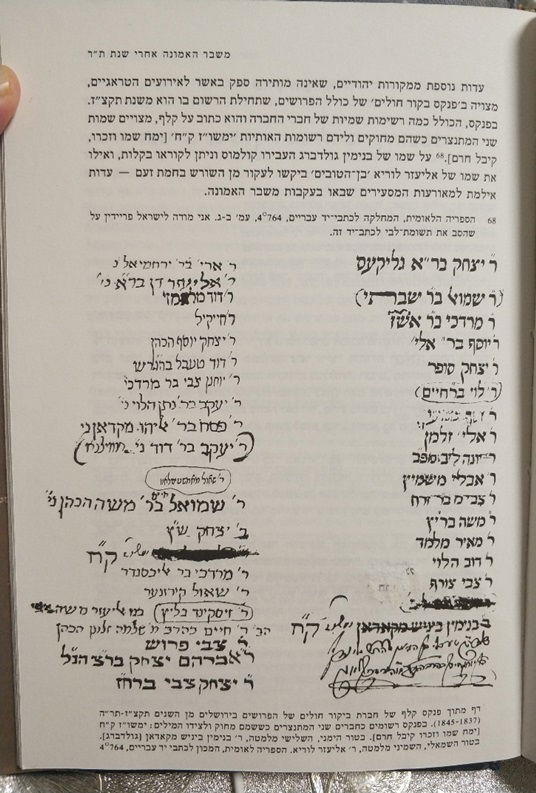 משבר האמונה אחרי שנת ת"ר
עדות נוספת ממקורות יהודיים, שאינה מותירה ספק באשר לאירועים הטראגיים,
מצויה ב'פנקס בקור חולים' של כולל הפרושים, שתחילת הרשום בו הוא משנת תקצ"ז.
בפנקס, הכולל כמה רשימות שמיות של חברי החברה והוא כתוב על קלף, מצויים שמות
שני המתנצרים כשהם מחוקים ולידם רשומות האותיות 'ימשו"ז ק"ח' [ימח שמו וזכרו,
קיבל חרם].68 על שמו של בנימין גולדברג העבירו קולמוס וניתן לקוראו בקלות, ואילו
את שמו של אליעזר לוריא 'בן-הטובים' ביקשו לעקור מן השורש בחמת זעם — עדות
אילמת למאורעות המסעירים שבאו בעקבות משבר האמונה.
68 הספריה הלאומית, המחלקה לכתבי-יד עבריים, 4°764, עמ' ב-ג. אני מודה לישראל פריידין על
שהסב את תשומת-לבי לכתב-יד זה.
ר' יצחק בר"א גליקעס
ר' שמואל בר
ר' מרדכי בר אשר
ר' יוסף בר' אלי'
ר' יצחק סופר
ר' לוי בר חיים
ר' אלי' זלמן
ר' יונה ליב
ר' אבלי
ר' צבי
ר' משה בריץ
ר' מאיר מלמד
ר' דוב הלוי
ר' צבי צורף
ר' בנימין ביניש מקאדאן ק"ח
ר' ארי' בר' ירחמיאל ני'
ר' אליעזר דן בר"א ני'
ר' דוד
ר' חיקיל
ר' יצחק יוסף הכהן
ר' דוד טעבל
ר' צבי בר מרדכי
ר' יעקב בר' נתן הלוי ני'
ר' פסח בר' אליהו מקדאן ני'
ר' יעקב בר' דוד ני'
ר' שאול
ר' שמואל חיים בר' משה הכהן ני'
ב' יצחק ש"ץ
ק"ח
ר' מרדכי בר אליכסנדר
ר' שאול
ר' זיסקינד בליץ
הר' ר' חיים בהרב מ' שלמה זלמן הכהן
ר' צבי פרוש
ר' אברהם יצחק ברצ"י הנ"ל
ר' יצחק צבי
דף מתוך פנקס קלף של חברת ביקור חולים של הפרושים בירושלים מן השנים תקצ"ז-תר"ה
(1837-1845). בפנקס רשומים כחברים שני המתנצרים כששמם מחוק ולצידו המילים: ימשו"ז ק"ח
[ימח שמו וזכרו קיבל חרם]. בטור הימני, השלישי מלמטה, ר' בנימין ביניש מקאדאן (גולדברג).
בטור השמאלי, השמיני מלמטה, ר' אליעזר לוריא. הספריה הלאומית, המכון לכתבי יד עבריים, 4°764